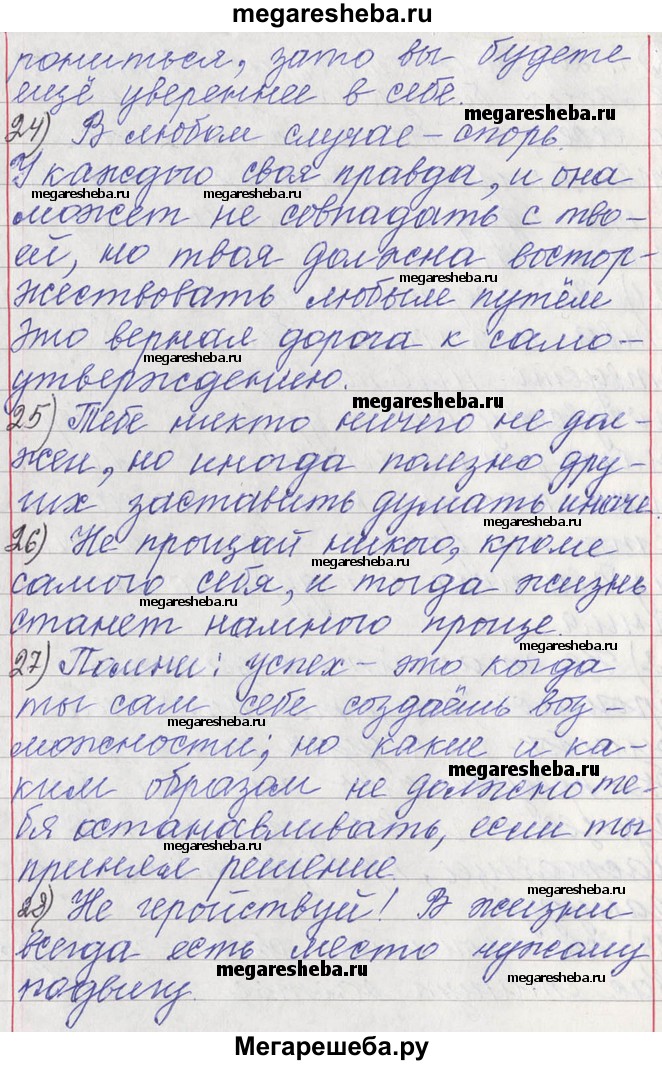 megaresheba.ru
рониться, зато вы будете
ещё увереннее в себе.
megaresheba.ru
24) В любом случае - спорь.
У каждого своя правда, и она
megaresheba.ru
megaresheba.ru
может не совпадать с тво-
ей, но твоя должна востор-
megaresheba.ru
жествовать любым путём
Это верная дорога к само-
megaresheba.ru
утверждению.
megaresheba.ru
25) Тебе никто ничего не дол-
жен, но иногда полезно дру-
гих заставить думать иначе.
megaresheba.ru
26) Не прощай никого, кроме
megaresheba.ru
самого себя, и тогда жизнь
megaresheba.ru
станет намного проще.
27) Помни: успех - это когда
ты сам себе создаёшь воз-
megaresheba.ru
можности; но какие и ка-
megaresheba.ru
ким образом не должно те-
бя останавливать, если ты
megaresheba.ru
принял решение.
megaresheba.ru
28) Не геройствуй! В жизни
всегда есть место чужому
megaresheba.ru
megaresheba.ru
подвигу.
Мегарешеба.ру